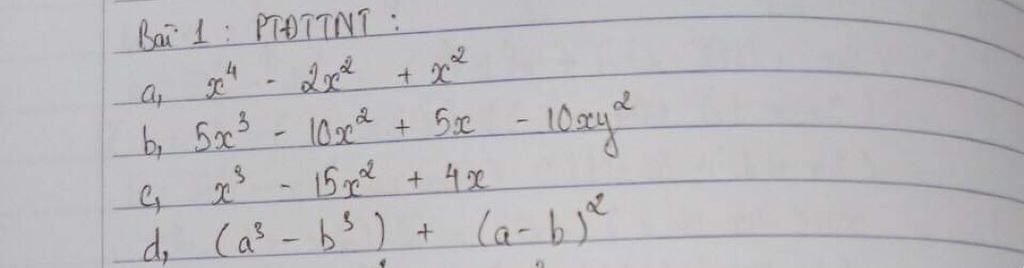 Bài 1 : PTĐTTNT :
a, x⁴ - 2x² + x²
b, 5x³ - 10x² + 5x - 10xy²
c, x³ - 15x² + 4x
d, (a³ - b³) + (a - b)²